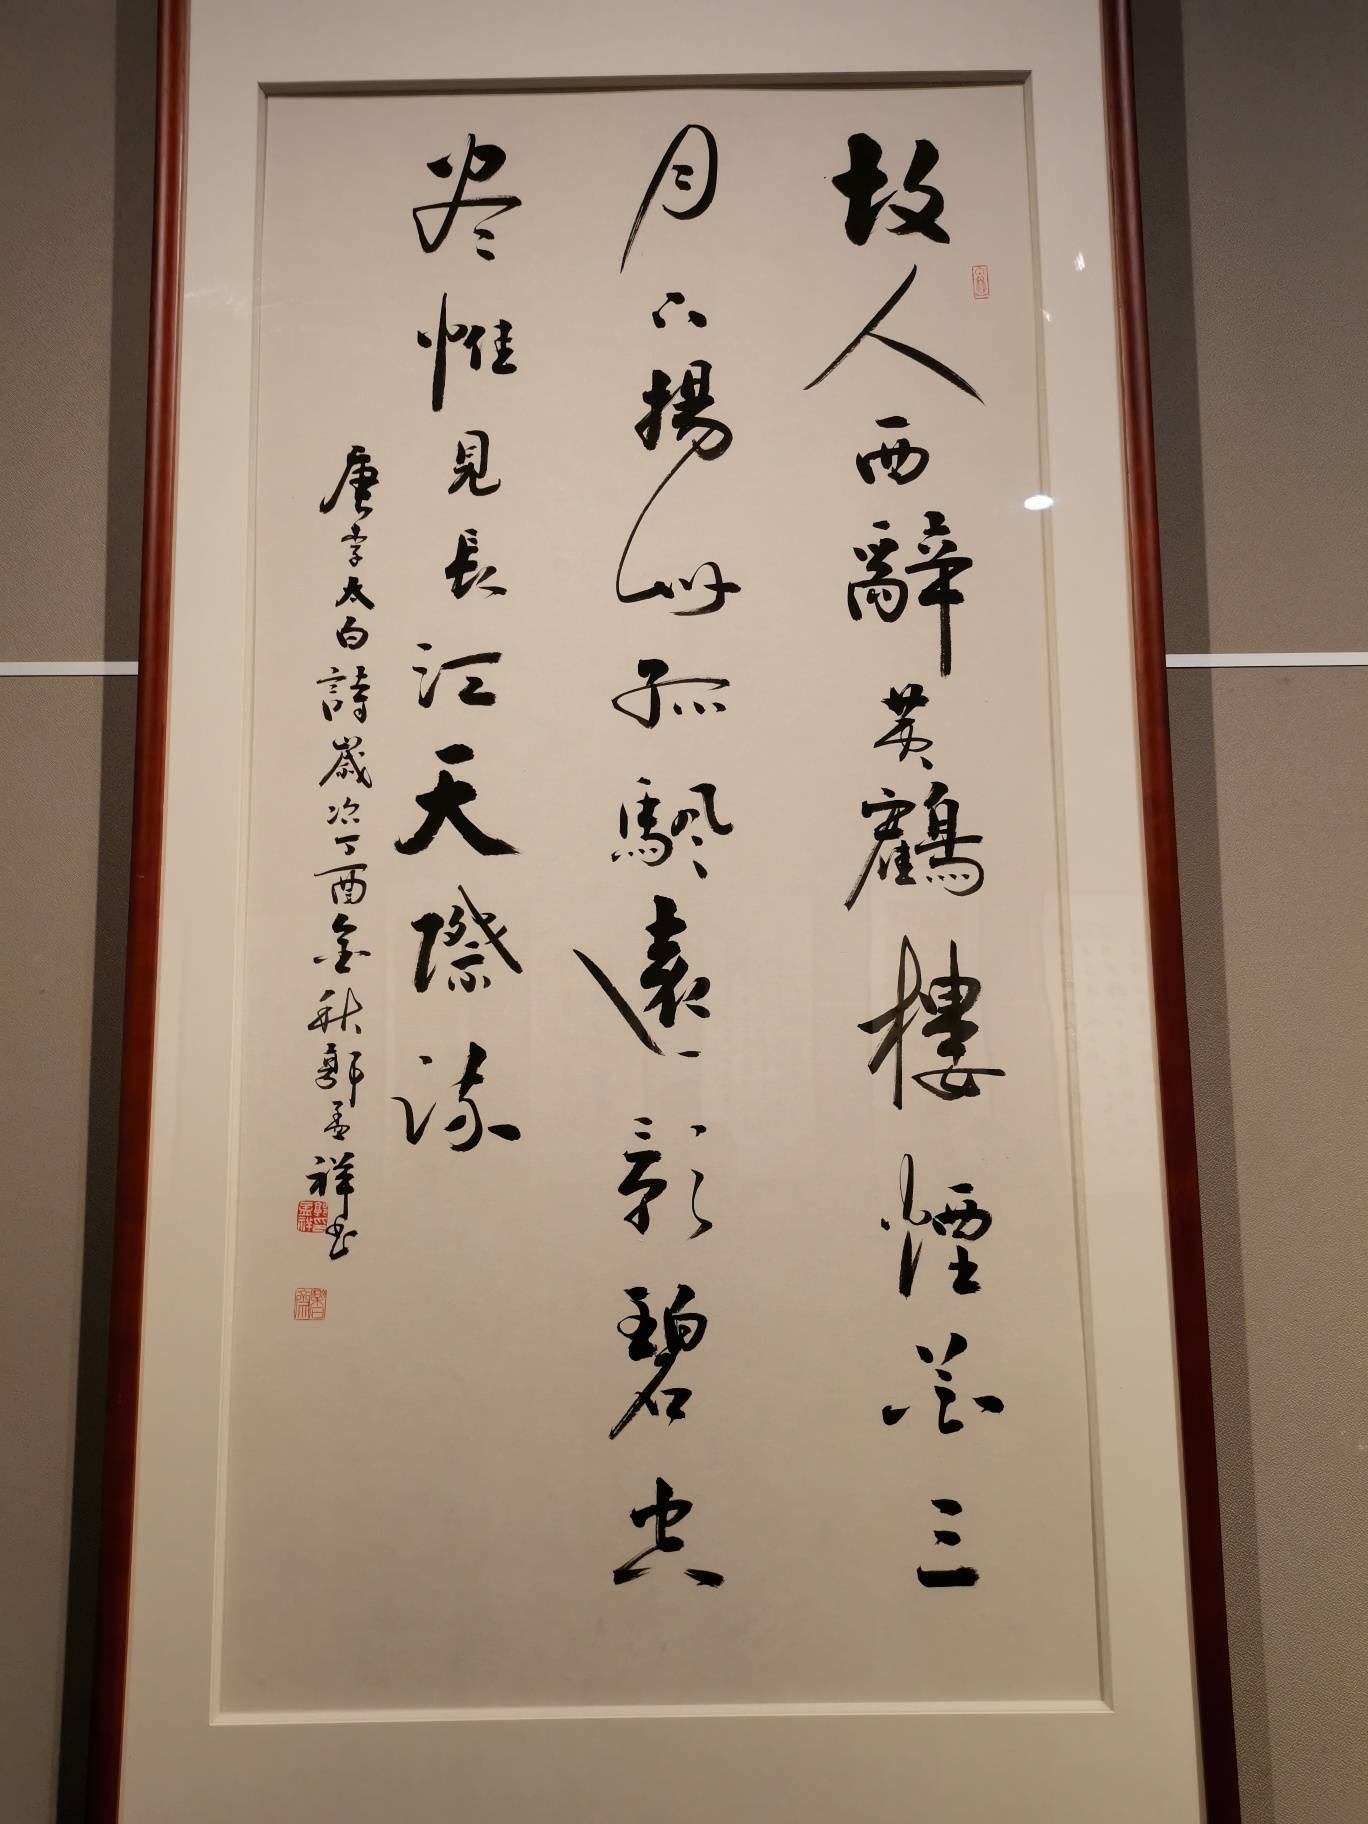 故人西辭黄鶴樓煙花三
月下揚州孤騘遠影碧空
尽惟見長江天際流
唐李太白詩歲次丁酉金秋郭孟祥书